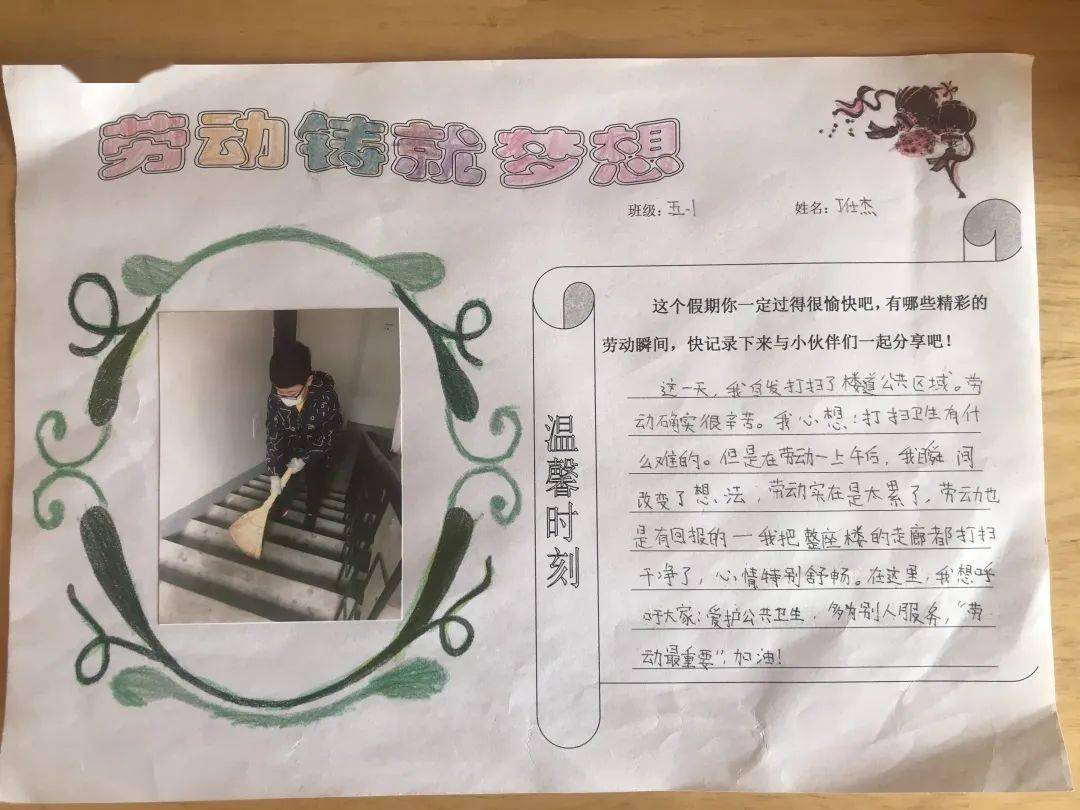 劳动铸就梦想
班级：五.1 姓名：丁仕杰
温馨时刻
这个假期你一定过得很愉快吧，有哪些精彩的
劳动瞬间，快记录下来与小伙伴们一起分享吧！
这一天，我自发打扫了楼道公共区域。劳
动确实很辛苦。我心想：打扫卫生有什
么难的。但是在劳动一上午后，我瞬间
改变了想法，劳动实在是太累了，劳动也
是有回报的一我把整座楼的走廊都打扫
干净了，心情特别舒畅。在这里，我想呼
吁大家：爱护公共卫生，多为别人服务，“劳
动最重要”，加油！